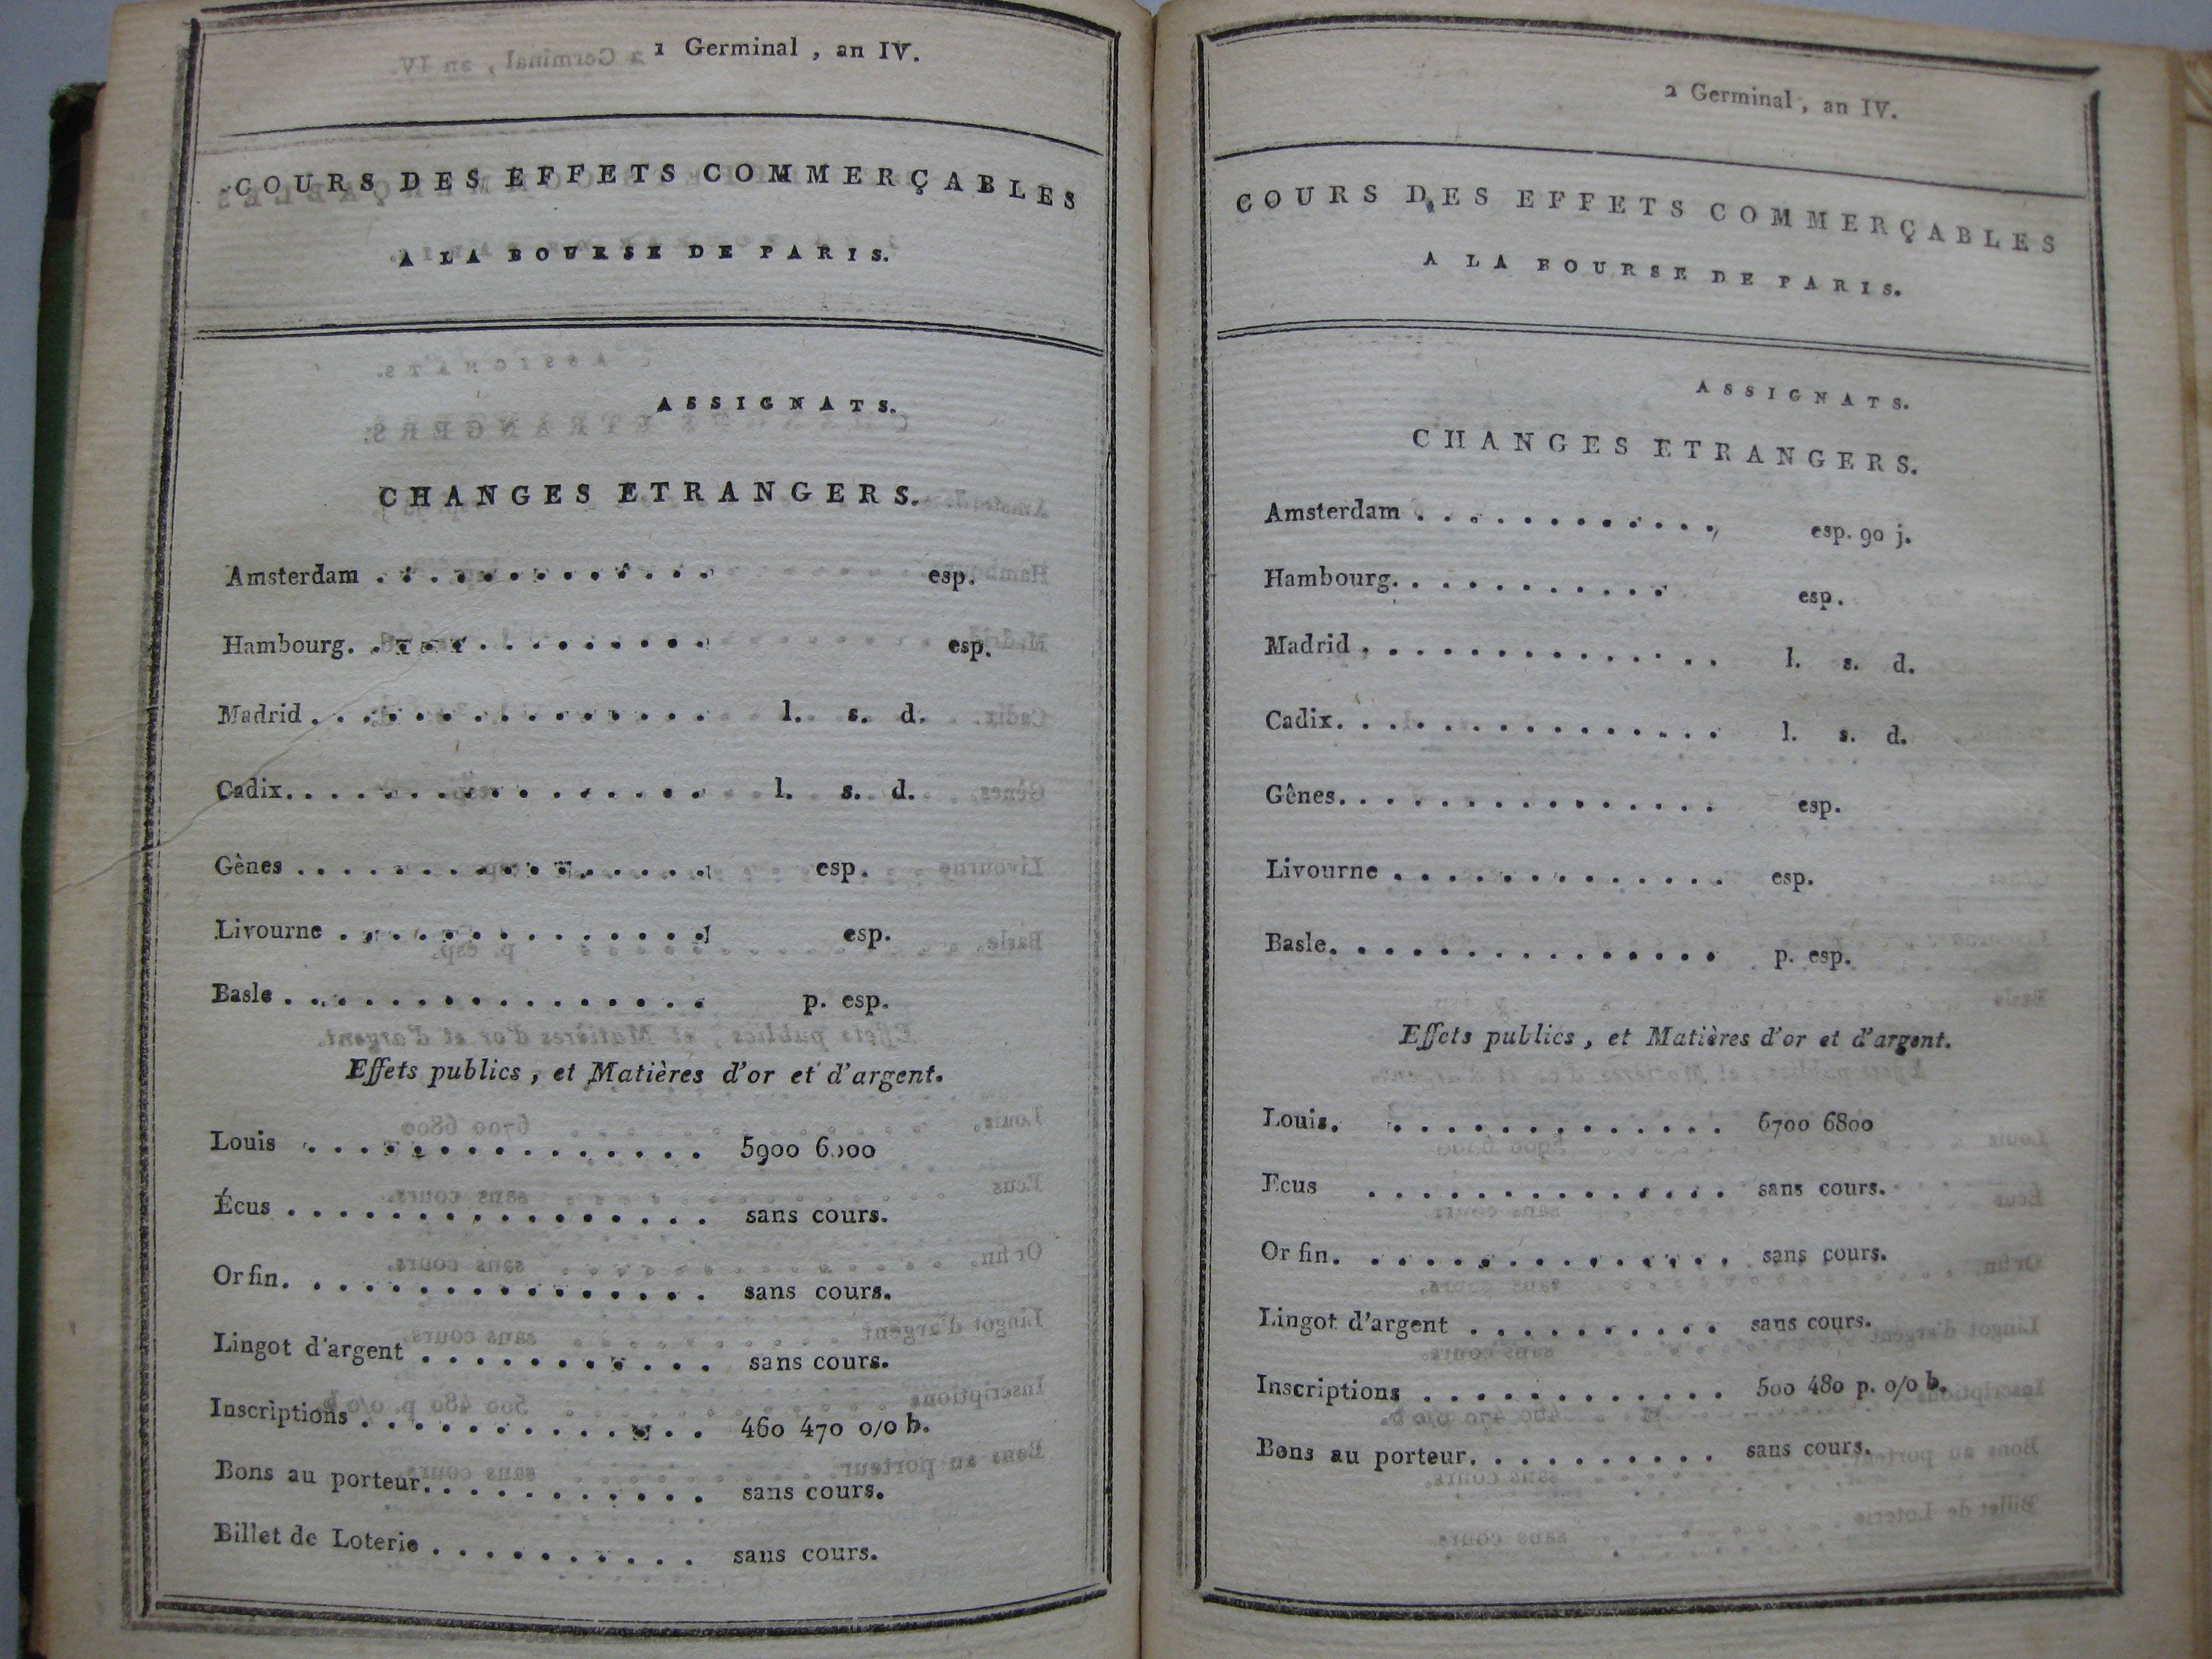 1 Germinal, an IV.
COURS DES EFFETS COMMERÇABLES
A LA BOURSE DE PARIS.
ASSIGNATS.
CHANGES ETRANGERS.
Amsterdam . . . . . . . . . . . . . esp.
Hambourg. . . . . . . . . . . . . esp.
Madrid . . . . . . . . . . . . . . . l. s. d.
Cadix. . . . . . . . . . . . . . . . l. s. d.
Gênes . . . . . . . . . . . . . . . . esp.
Livourne . . . . . . . . . . . . . . esp.
Basle . . . . . . . . . . . . . . . . p. esp.
Effets publics, et Matières d'or et d'argent.
Louis . . . . . . . . . . . . . . . . 5900 6000
Écus . . . . . . . . . . . . . . . . sans cours.
Or fin. . . . . . . . . . . . . . . . sans cours.
Lingot d'argent . . . . . . . . . . . sans cours.
Inscriptions . . . . . . . . . . . . . 460 470 0/0 b.
Bons au porteur. . . . . . . . . . . . sans cours.
Billet de Loterie . . . . . . . . . . sans cours.
2 Germinal, an IV.
COURS DES EFFETS COMMERÇABLES
A LA BOURSE DE PARIS.
ASSIGNATS.
CHANGES ETRANGERS.
Amsterdam . . . . . . . . . . . . esp. 90 j.
Hambourg. . . . . . . . . . . esp.
Madrid . . . . . . . . . . . . . . l. s. d.
Cadix. . . . . . . . . . . . . . . l. s. d.
Gênes. . . . . . . . . . . . . . . esp.
Livourne . . . . . . . . . . . . . esp.
Basle. . . . . . . . . . . . . . . p. esp.
Effets publics, et Matières d'or et d'argent.
Louis. . . . . . . . . . . . . . 6700 6800
Ecus . . . . . . . . . . . . . . sans cours.
Or fin. . . . . . . . . . . . . . . sans cours.
Lingot d'argent . . . . . . . . . . sans cours.
Inscriptions . . . . . . . . . . . . 500 480 p. 0/0 b.
Bons au porteur. . . . . . . . . . sans cours.